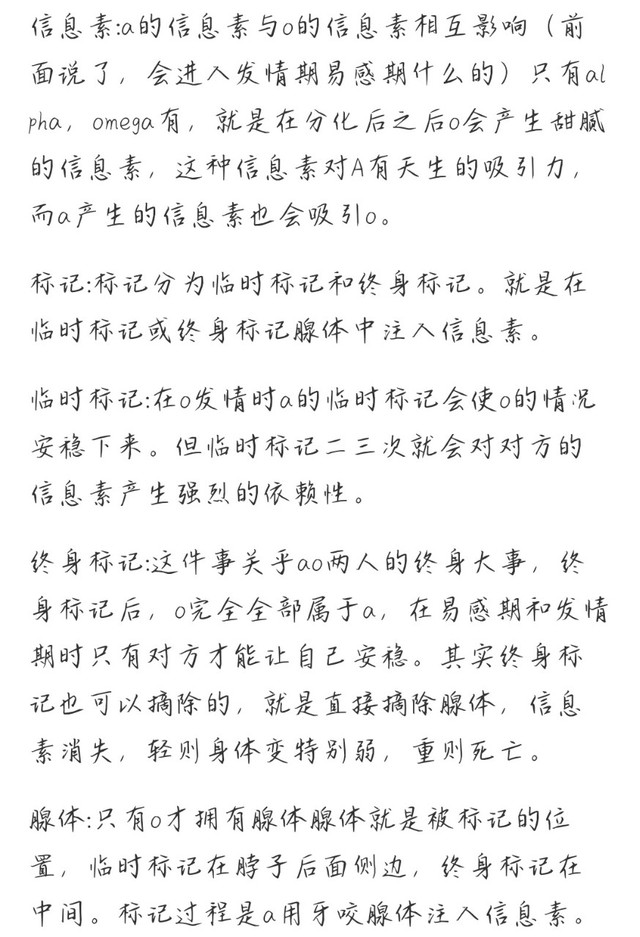 信息素:a的信息素与o的信息素相互影响（前
面说了，会进入发情期易感期什么的）只有al
pha，omega有，就是在分化后之后o会产生甜腻
的信息素，这种信息素对A有天生的吸引力，
而a产生的信息素也会吸引o。
标记:标记分为临时标记和终身标记。就是在
临时标记或终身标记腺体中注入信息素。
临时标记:在o发情时a的临时标记会使o的情况
安稳下来。但临时标记二三次就会对对方的
信息素产生强烈的依赖性。
终身标记:这件事关乎ao两人的终身大事，终
身标记后，o完全全部属于a，在易感期和发情
期时只有对方才能让自己安稳。其实终身标
记也可以摘除的，就是直接摘除腺体，信息
素消失，轻则身体变特别弱，重则死亡。
腺体:只有o才拥有腺体腺体就是被标记的位
置，临时标记在脖子后面侧边，终身标记在
中间。标记过程是a用牙咬腺体注入信息素。